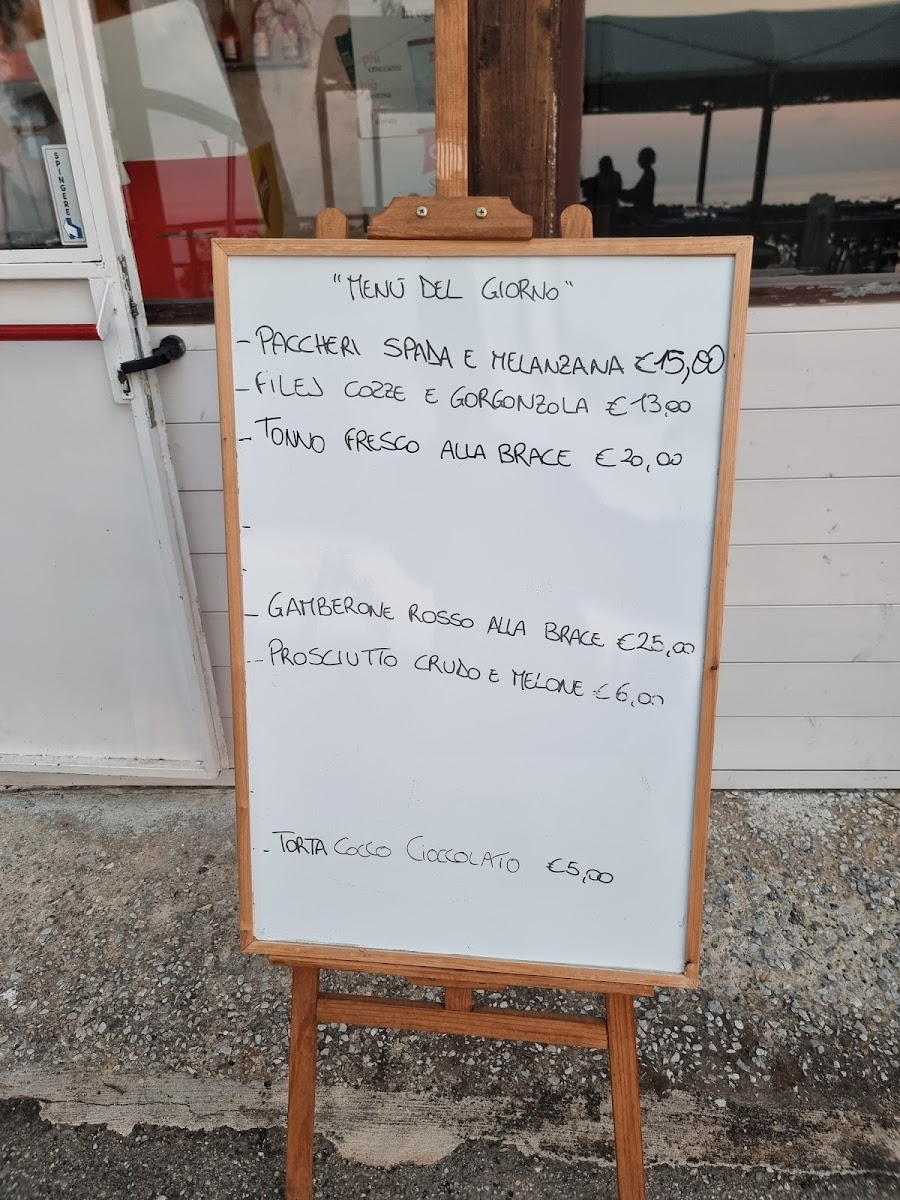 più
croccante
SPINGERE
"MENÙ DEL GIORNO"
- PACCHERI SPADA E MELANZANA €15,00
- FILEJ COZZE E GORGONZOLA €13,00
- TONNO FRESCO ALLA BRACE €20,00
-
-
- GAMBERONE ROSSO ALLA BRACE €25,00
- PROSCIUTTO CRUDO E MELONE €6,00
- TORTA COCCO CIOCCOLATO €5,00